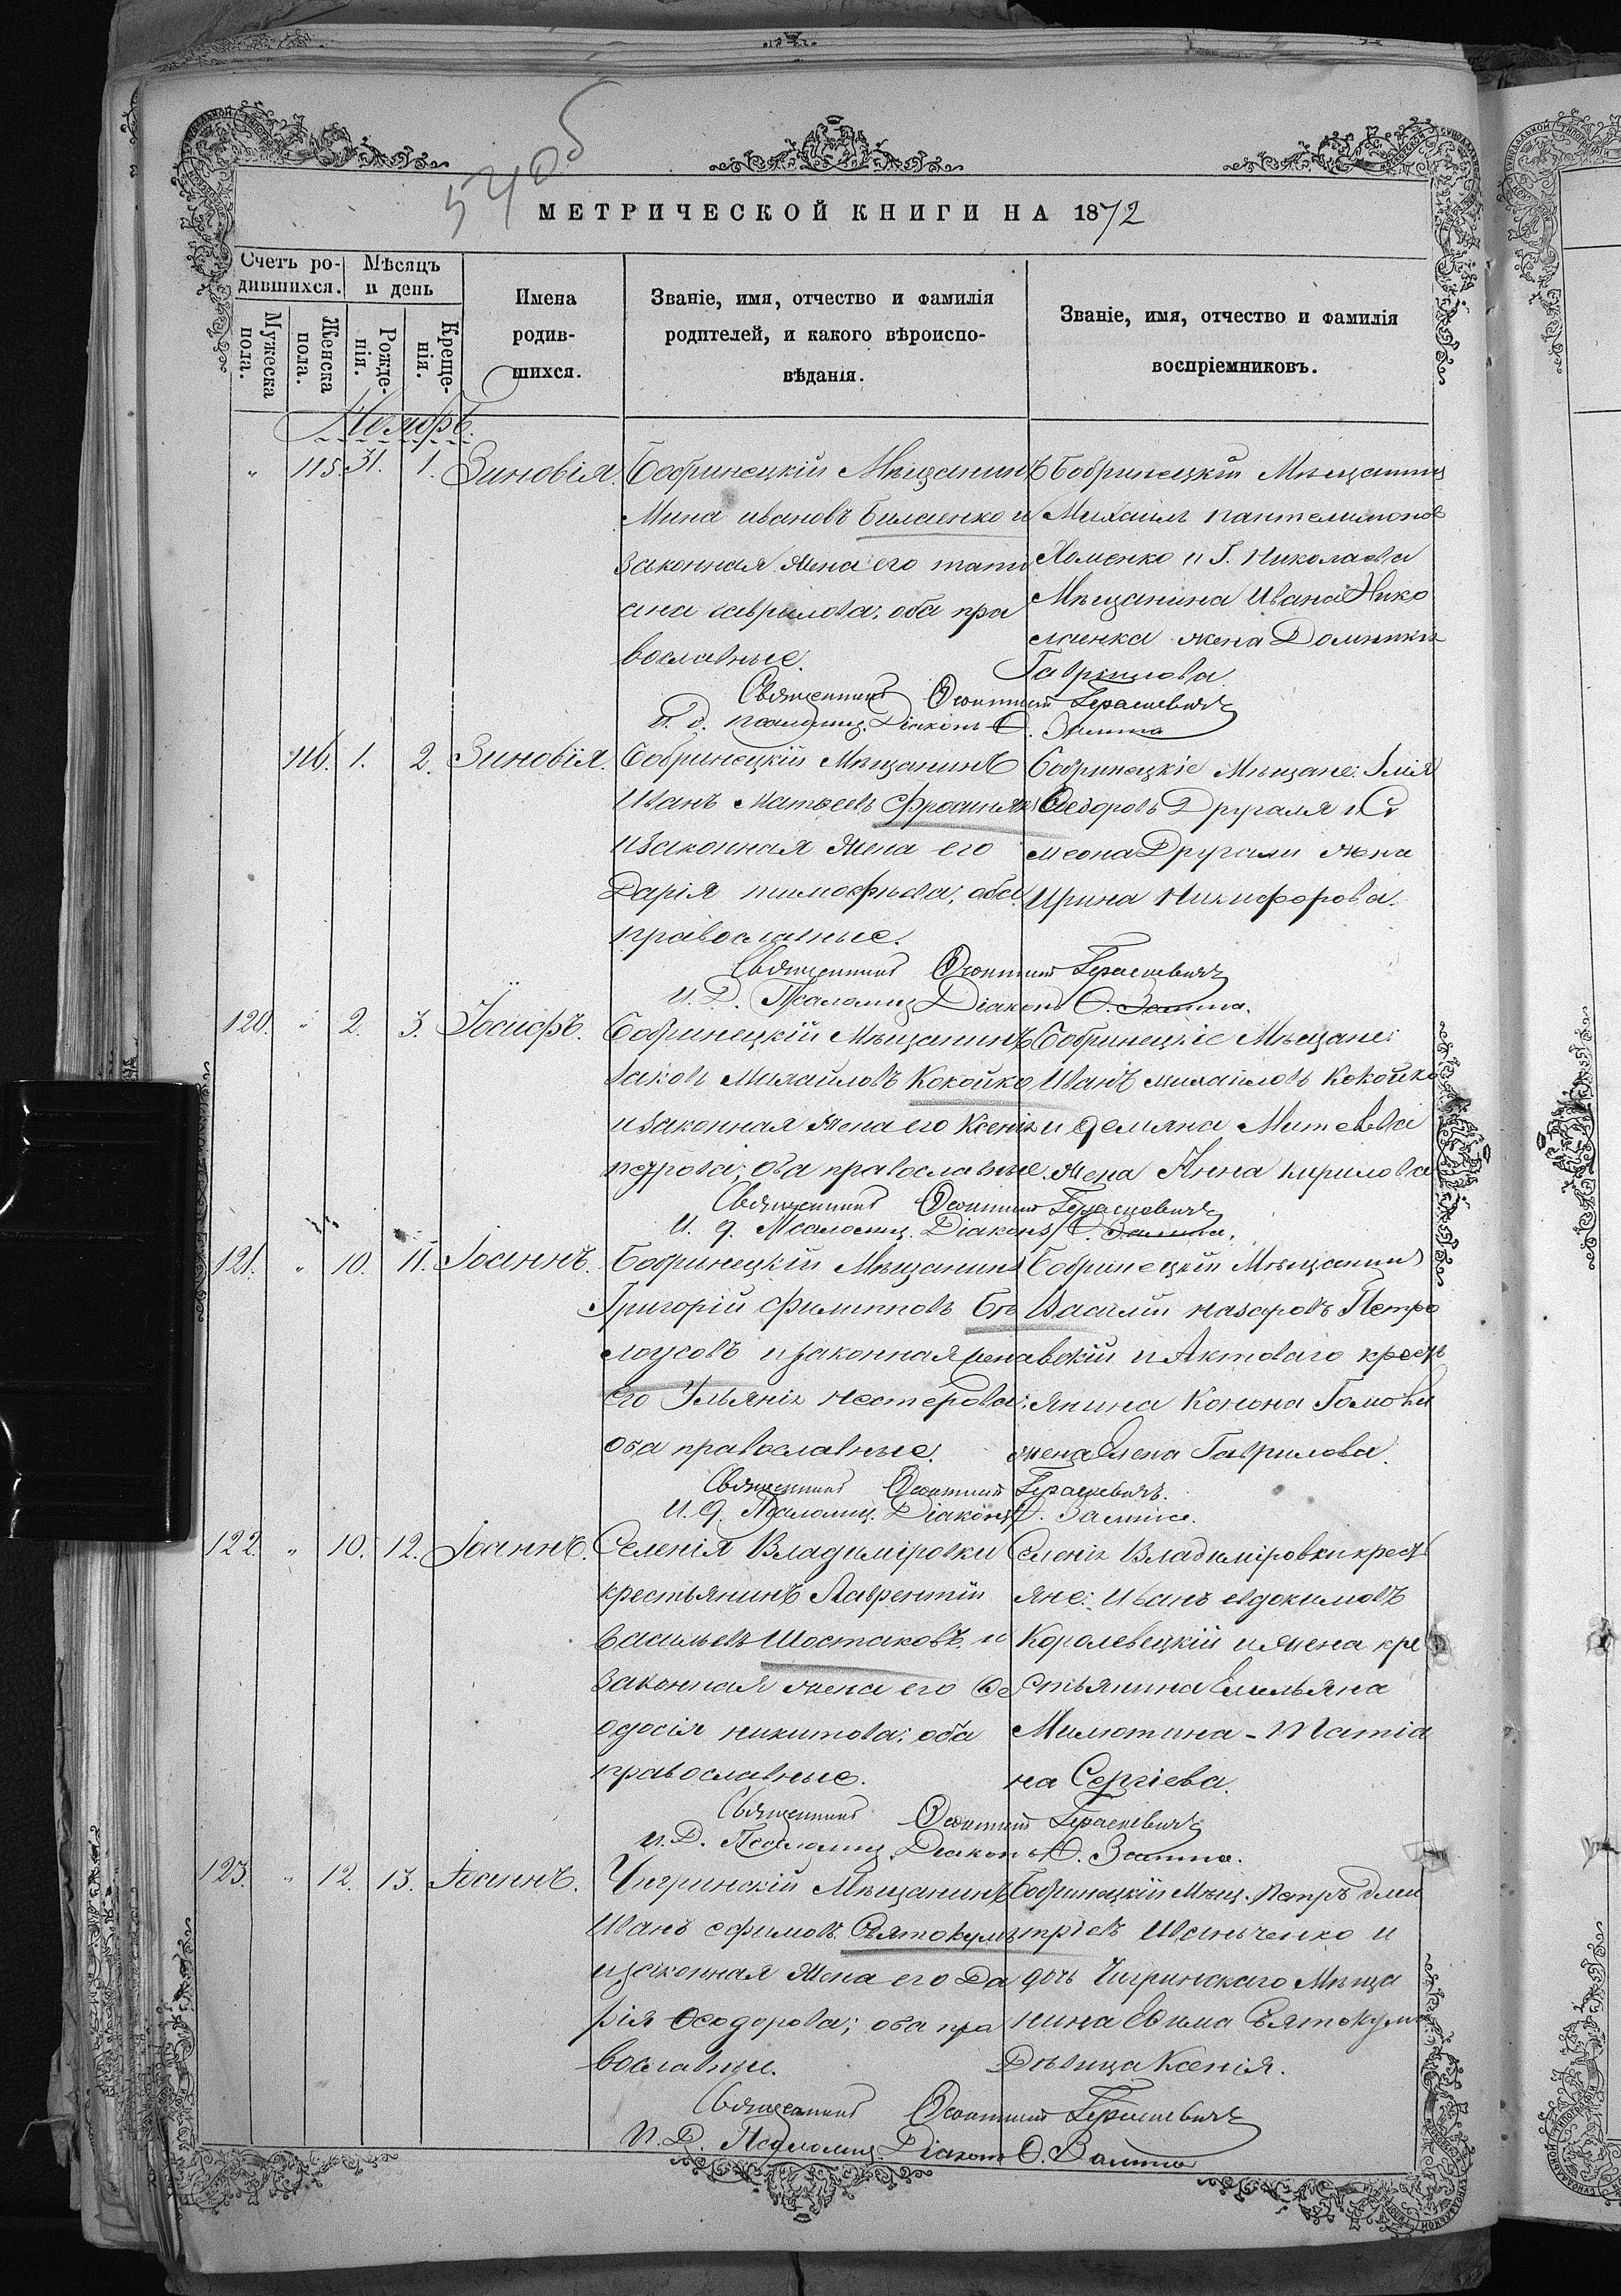 540б
МЕТРИЧЕСКОЙ КНИГИ НА 1872
Счетъ ро-
дившихся.
Мѣсяцъ
и день
Мужеска
пола.
Женска
пола.
Рожде-
нія.
Креще-
нія.
Имена
родив-
шихся.
Званіе, имя, отчество и фамилія
родителей, и какого вѣроиспо-
вѣданія.
Званіе, имя, отчество и фамилія
воспріемниковъ.
Ноябрь.
" 115. 31. 1. Зиновія.
Бобринецкій Мѣщанинъ
Мина ивановъ Билаенко и
законная жена его тати
ана гаврилова; оба пра
вославные.
Бобринецкій Мѣщанинъ
Михаилъ пантелимонов
Хоменко и Г. Николаева
Мѣщанина Ивана Нико
лаенка жена Домникія
Гаврилова.
Священникъ Герасиевичъ
И. д. псаломщ. Діаконъ
116. 1. 2. Зиновія.
Бобринецкій Мѣщанинъ
Иванъ Матѳеевъ
и законная жена его
Дарія тимофѣева; оба
православные.
Бобринецкіе Мѣщане: Илія
Ѳеодоровъ Другаля и Си
меона Другали жена
Ирина Никифорова.
Священникъ Герасиевичъ
И. Д. Псаломщ. Діаконъ
120. " 2. 3. Іосифъ.
Бобринецкій Мѣщанинъ
Іаковъ Михайловъ Кокойко
и законная жена его Ксенія
петрова; оба православные.
Бобринецкіе Мѣщане:
Иванъ михаиловъ Кокойко
и Демяна Митевва
жена Анна кирилова
Священникъ Герасиевичъ
И. д. Псаломщ. Діаконъ
121. " 10. 11. Іоаннъ.
Бобринецкій Мѣщанинъ
Григорій Филипповъ Бѣ
лоусовъ и законная жена
его Ульянія нестерова;
оба православные.
Бобринецкій Мѣщанинъ
Василій назаровъ Петро
авскій и Актоваго кресть
янина Конона Гомовы
жена Елена Гаврилова.
Священникъ Герасиевичъ.
И. д. Псаломщ. Діаконъ
122. " 10. 12. Іоаннъ.
Селенія Владиміровки
крестьянинъ Лаврентій
васильевъ Шостаковъ и
законная жена его Ѳе
одосія никитова; оба
православные.
Селенія Владиміровки кресть
яне: Иванъ евдокимовъ
Королевецкій и жена кре
стьянина Емельяна
Милютина - Татіа
на Сергіева.
Священникъ Герасиевичъ
И. Д. Псаломщ. Діаконъ
123. " 12. 13. Іоаннъ.
Чигринскій Мѣщанинъ
Иванъ ефимовъ Святокумъ
и законная жена его Да
рія Ѳеодорова; оба пра
вославные.
Бобринецкій Мѣщ. Петръ дми
тріевъ Иваньченко и
дочь Чигринскаго Мѣща
нина Евима Святокума
Дѣвица Ксенія.
Священникъ Герасиевичъ
И. Д. Псаломщ. Діаконъ